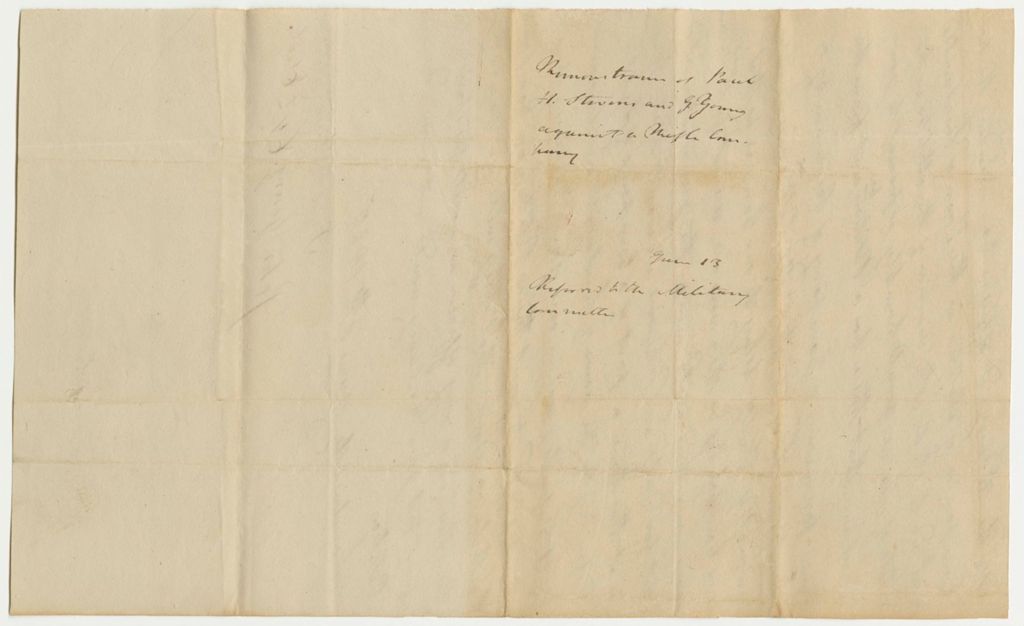 Remonstrance of Paul
H. Stevens and G. Young
against a Rifle Com-
pany
June 13
Referred to the Military
Committee